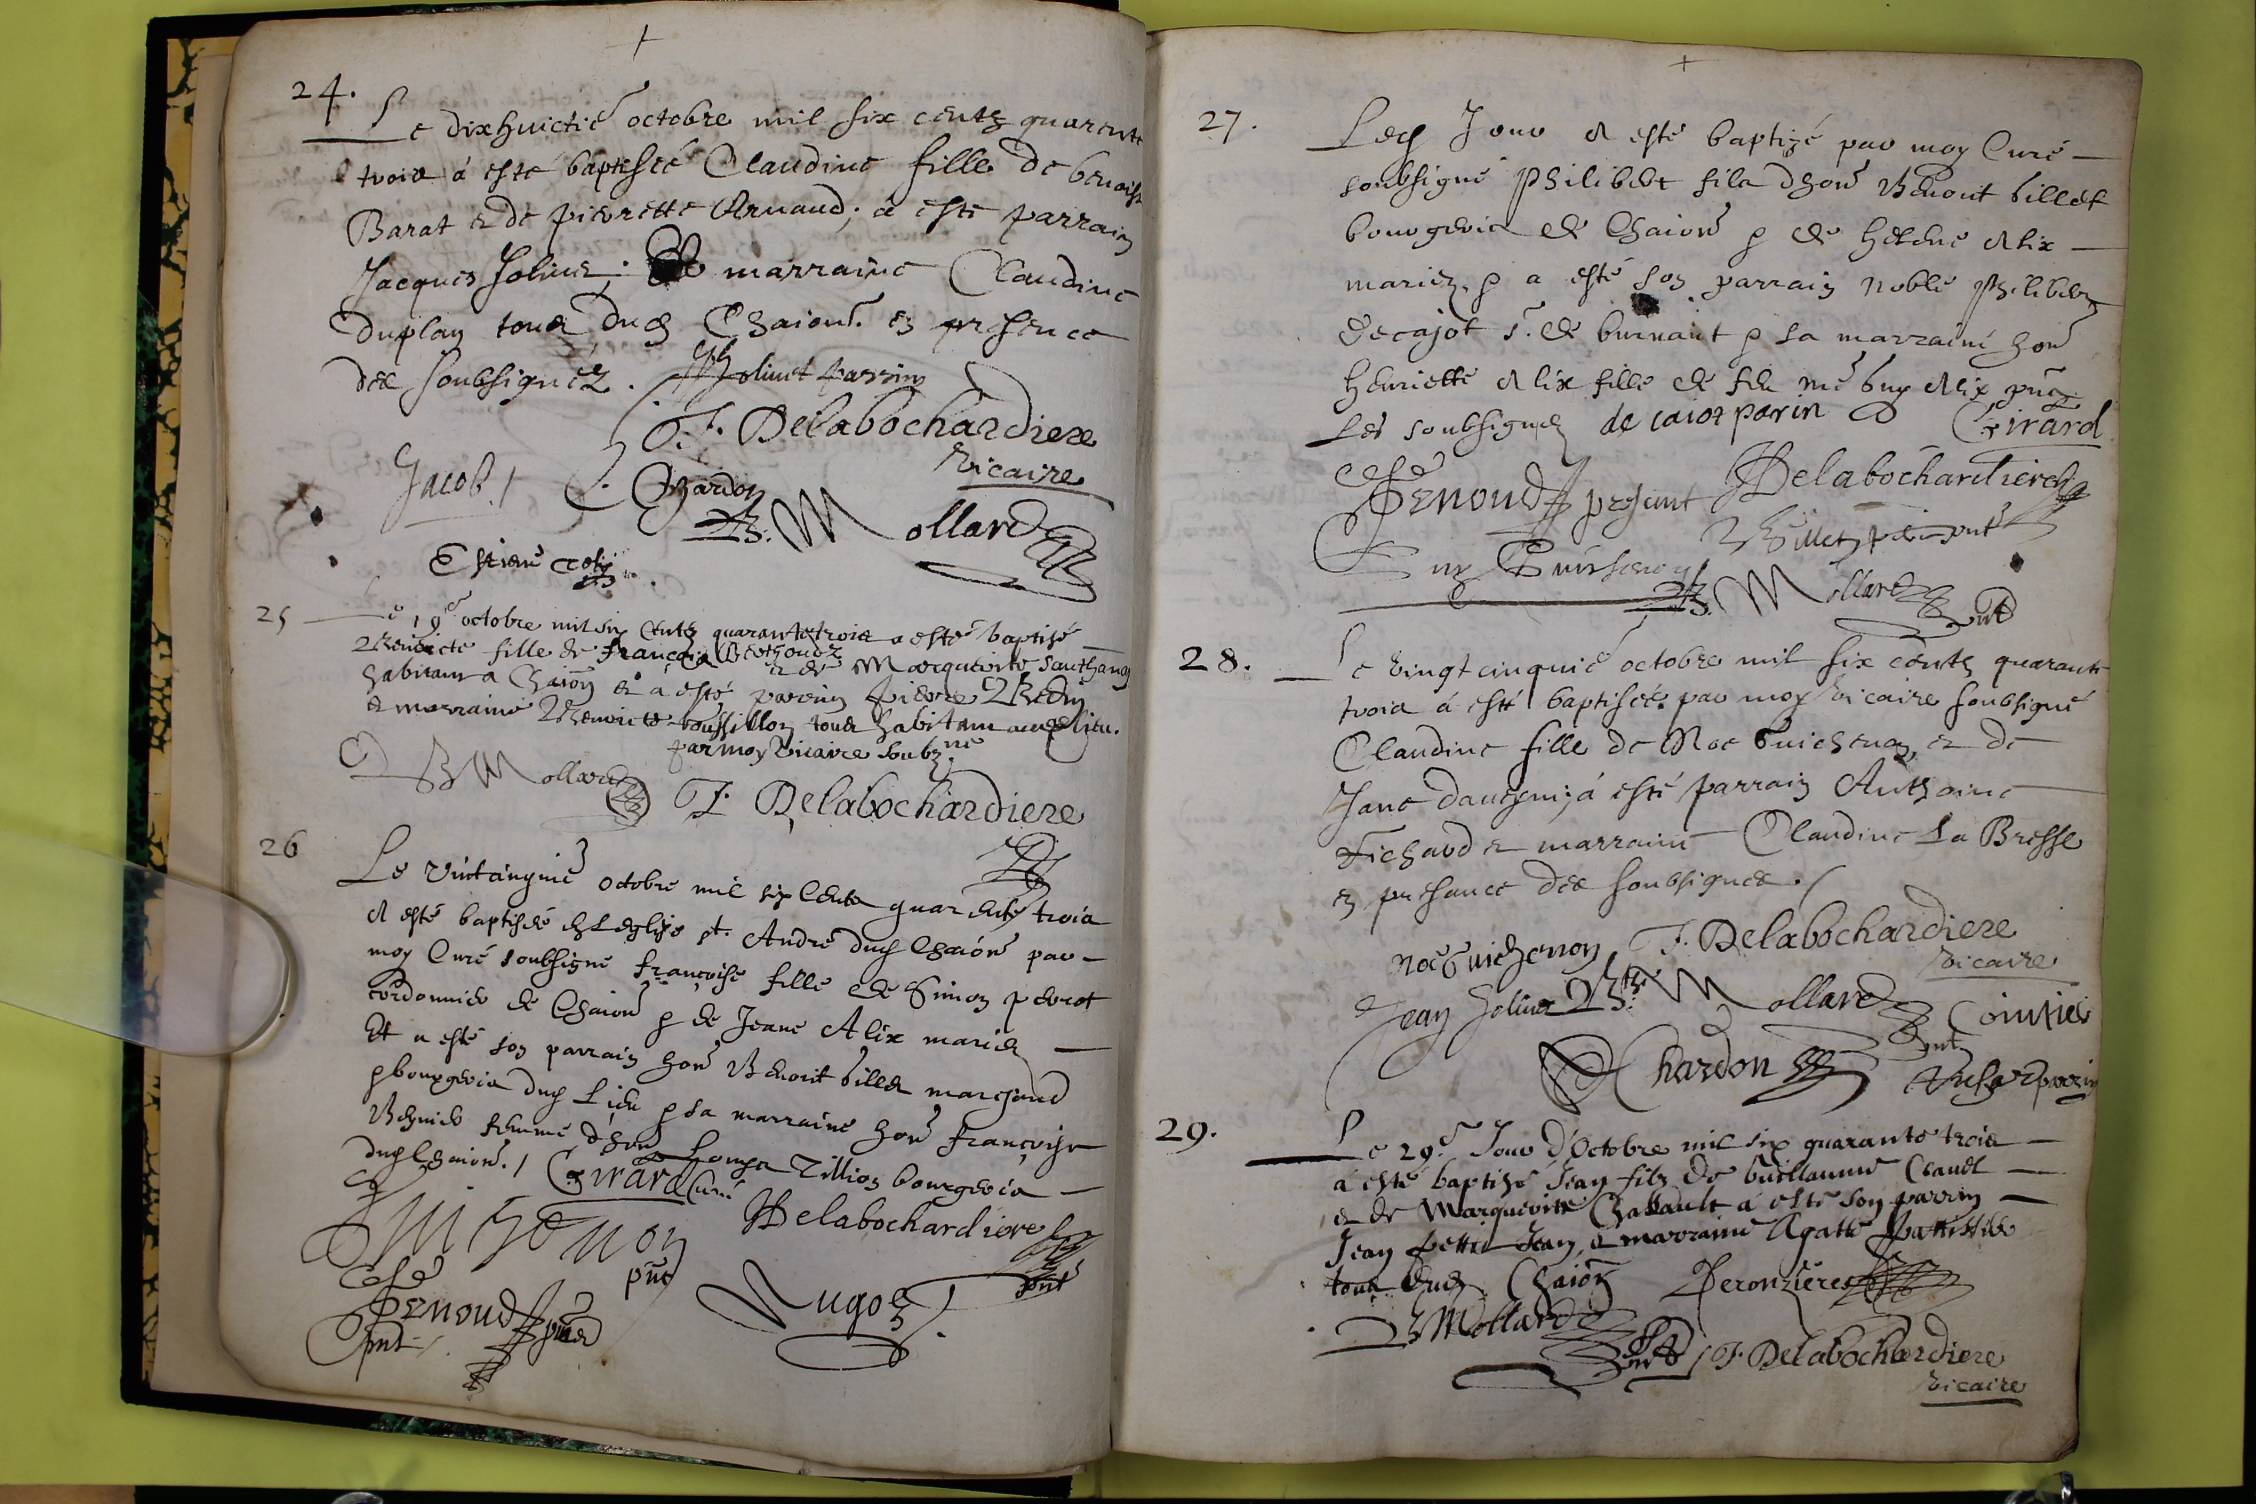 24.
Le dixhuictie octobre mil six centz quarente
troia à esté baptisée Claudine fille de benoist
Barat & de pierrette Arnaud; à esté parrain
Jacques Jolinet; & marraine Claudine
duplan tous dud Chaion. en presence
des soubsignéz. Jolinet parrin
F. Delabochardiere
vicaire
Jacob
Chardon
B. Mollard
25
Le 19e octobre mil six centz quarantetrois a esté baptisé
Benoicte fille de françois & de Marguerite
habitans a Chaion & a esté parrin pierre
& marraine Benoicte roussillon tous habitans aud lieu.
par moy vicaire soubzne
B Mollard
F. Delabochardiere
26
Le vintcinquie octobre mil six cents quarente trois
a esté baptisée en Leglise st. André dud Chaion par
moy Curé soubsigné françoise fille de Simon perrot
cordonnier de Chaion & de Jeane Alix mariez
Et a esté son parrain hon Benoit billet marchand
& bourgeois dud Lieu & sa marraine hon françoise
femme d'hon Tillion bourgeois
dud Chaion. / Girard Curé
Delabochardiere
pnt
pnt
Penoud
pnt
27.
Led Jour a esté baptizé par moy Curé
soubsigné Philibert fils d'hon Benoit billet
bourgeois de Chaion & de helene Alix
mariez, & a esté son parrain noble Philibert
decajot sr. de burnant & sa marraine hon
henriette Alix fille de feu me guy Alix pntz
Les soubsignez de caiot parin Girard
Penoud present Delabochardiere
B. Mollard
pnt
28.
Le vingtcinquie octobre mil six centz quarante
trois à esté baptisée par moy vicaire soubsigné
Claudine fille de Noe Guichenon, & de
Jane à esté parrain Anthoine
& marraine Claudine La Bresse
en presance des soubsignes.
noe Guichenon F. Delabochardiere
vicaire
Jean Jolinet B. Mollard
pnt
Chardon
29.
Le 29e Jour d'Octobre mil six quarante trois
a esté baptizé Jean filz de Guillaume
& de Marguerite a esté son parrin
Jean petit Jean, & marraine Agatte
tous dud Chaion Peronzieres
B Mollard
pnt F. Delabochardiere
vicaire